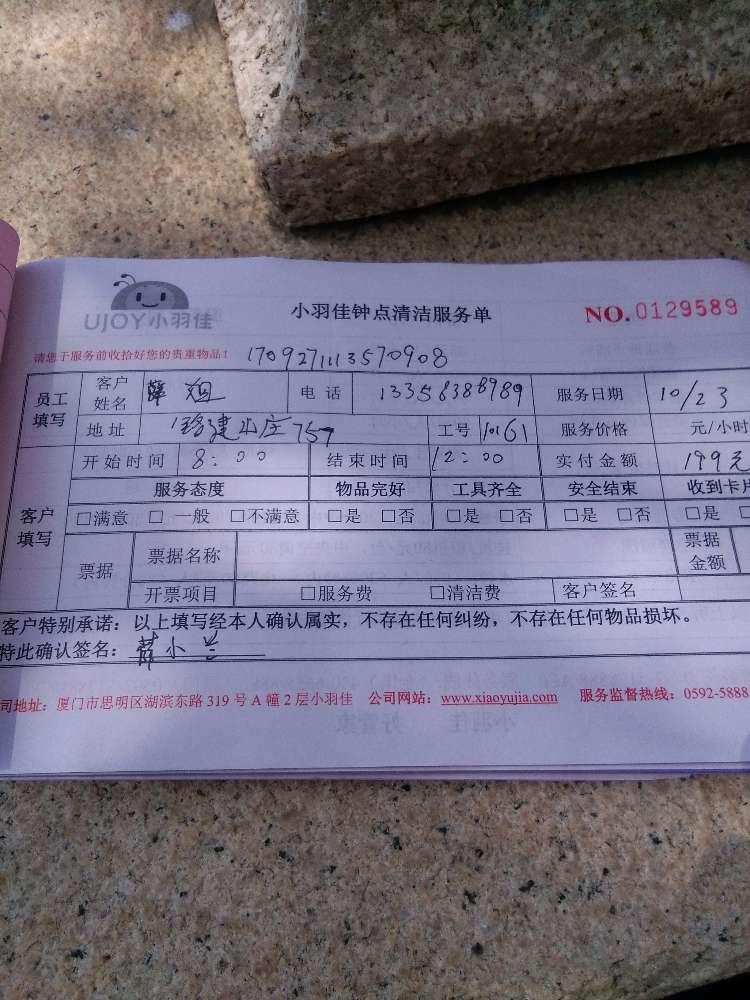 UJOY小羽佳
小羽佳钟点清洁服务单 NO.0129589
请您于服务前收拾好您的贵重物品! 1709271113570908
员工填写 客户姓名 薛姐 电话 13358388989 服务日期 10/23
地址 路建山庄757 工号 10161 服务价格 元/小时
客户填写 开始时间 8:00 结束时间 12:00 实付金额 199元
服务态度 物品完好 工具齐全 安全结束 收到卡片
□满意 □一般 □不满意 □是 □否 □是 □否 □是 □否 □是
票据 票据名称 票据金额
开票项目 □服务费 □清洁费 客户签名
客户特别承诺：以上填写经本人确认属实，不存在任何纠纷，不存在任何物品损坏。
特此确认签名：薛小兰
司地址：厦门市思明区湖滨东路319号A幢2层小羽佳 公司网站：www.xiaoyujia.com 服务监督热线：0592-5888